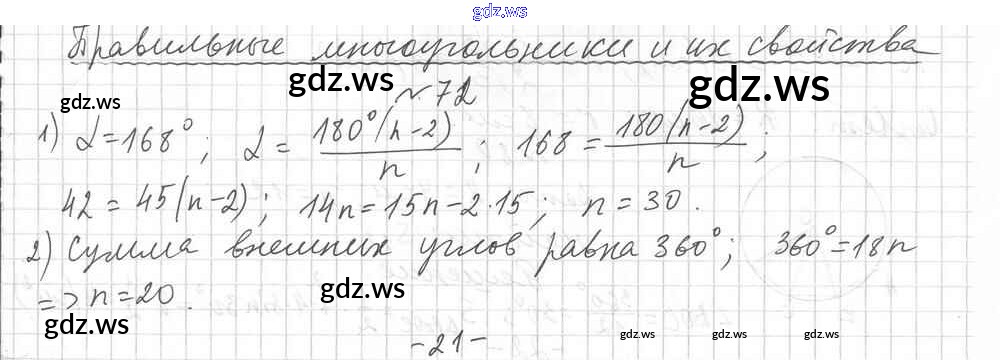 gdz.ws
Правильные многоугольники и их свойства
gdz.ws gdz.ws gdz.ws
№ 72
1) α = 168°; α = 180°(n-2)/n; 168 = 180(n-2)/n;
42 = 45(n-2); 14n = 15n - 2·15; n = 30.
2) Сумма внешних углов равна 360°; 360° = 18n
=> n = 20.
gdz.ws gdz.ws
-21-
gdz.ws gdz.ws gdz.ws